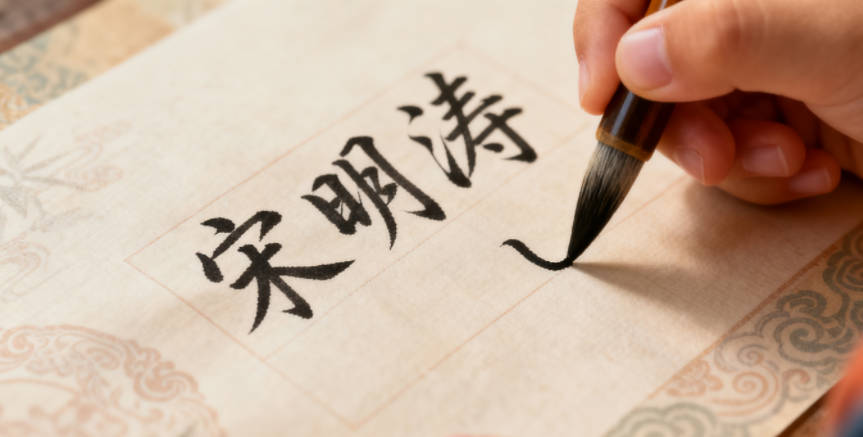 宋明涛